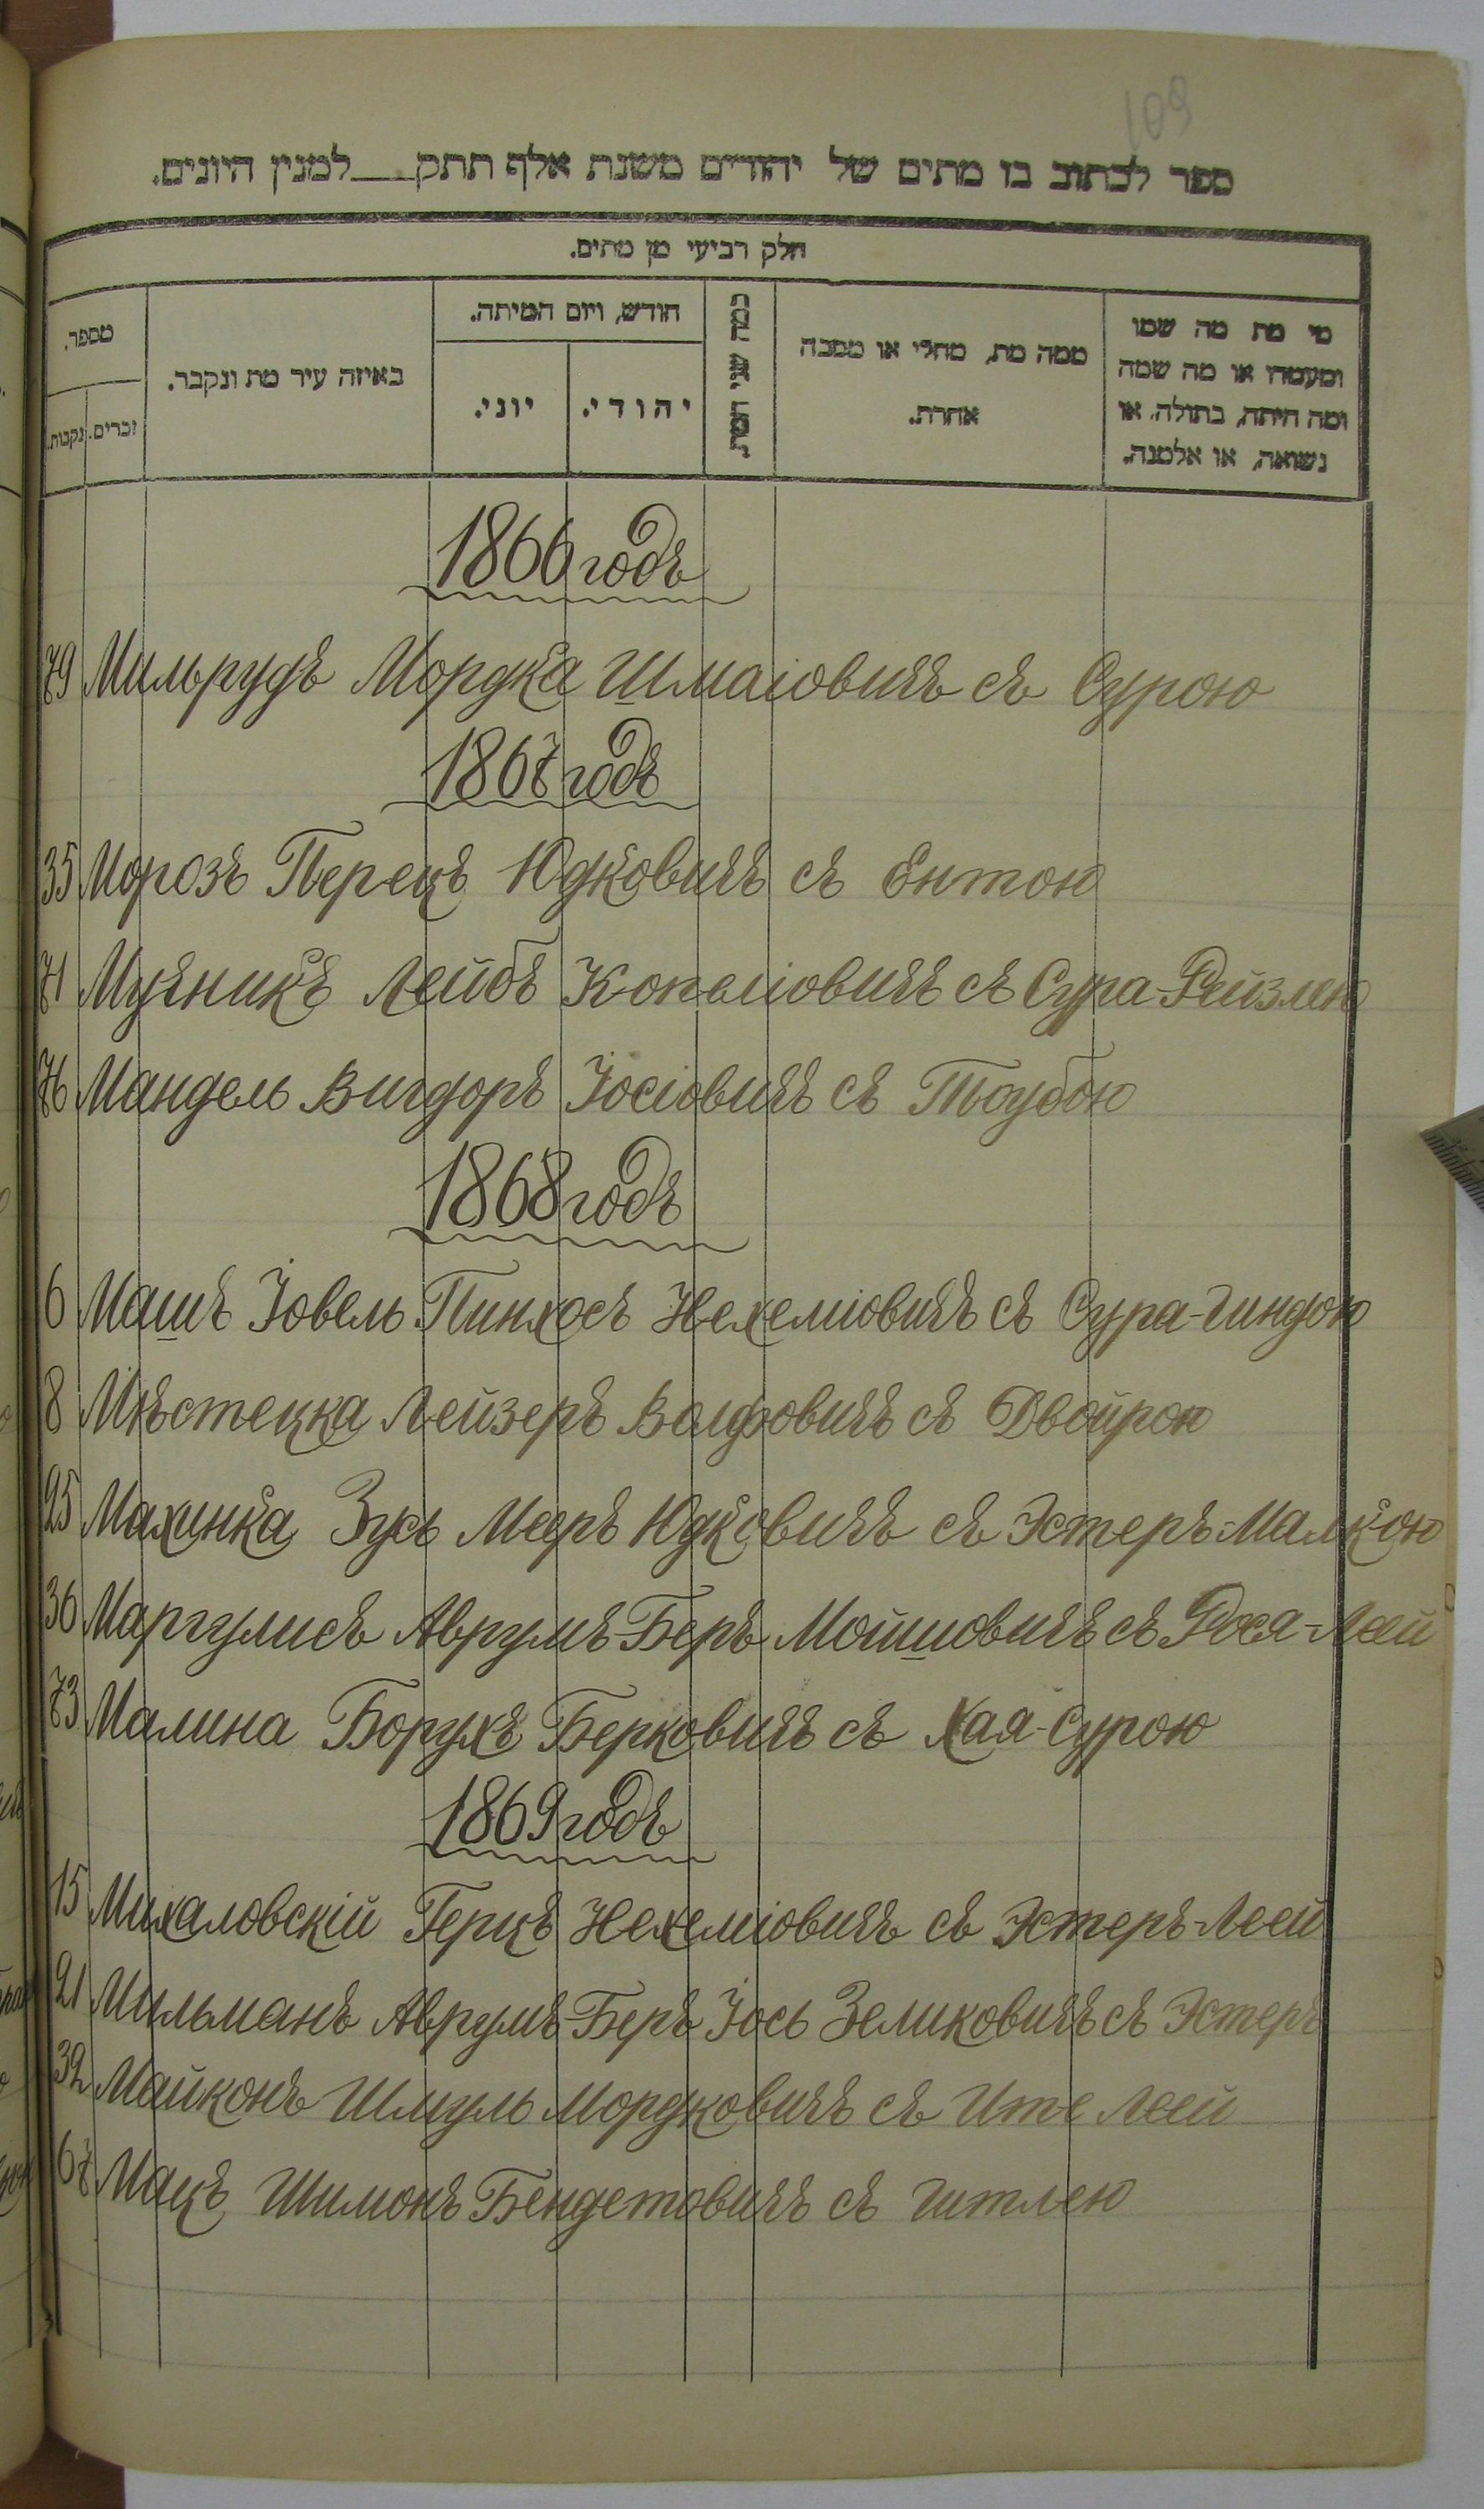 109
ספר לכתוב בו מתים של יהודים משנת אלף תתק___למנין היונים.
חלק רביעי מן מתים.
מי מת מה שמו ומעמדו או מה שמה ומה היתה, בתולה, או נשואה, או אלמנה.
ממה מת, מחלי או מסבה אחרת.
כמה שני המת.
חודש, ויום המיתה.
יהודי.
יוני.
באיזה עיר מת ונקבר.
מספר.
זכרים.
נקבות.
1866 годъ
79 Мильрудъ Мордка Шмаіовичъ съ Сурою
1867 годъ
35 Морозъ Перецъ Юдковичъ съ Ентою
71 Мучникъ Лейбъ Копеліовичъ съ Сура-Рейзлею
76 Мандель Вигдоръ Іосіовичъ съ Таубою
1868 годъ
6 Машъ Іовель Пинхосъ Нехеміовичъ съ Сура-Гиндою
8 Мѣстецка Лейзеръ Волфовичъ съ Двойрою
25 Махинка Зусь Мееръ Юдковичъ съ Эстеръ-Малкою
36 Маргулисъ Аврумъ-Беръ Мойшовичъ съ Рося-Леей
73 Малина Борухъ Берковичъ съ Хая-Сурою
1869 годъ
15 Михаловскій Герцъ Нехеміовичъ съ Эстеръ-Леей
21 Мильманъ Аврумъ-Беръ Іось Зеликовичъ съ Эстеръ
32 Майконъ Шмуль Мордковичъ съ Ите Леей
67 Мацъ Шимонъ Бендетовичъ съ Гитлею